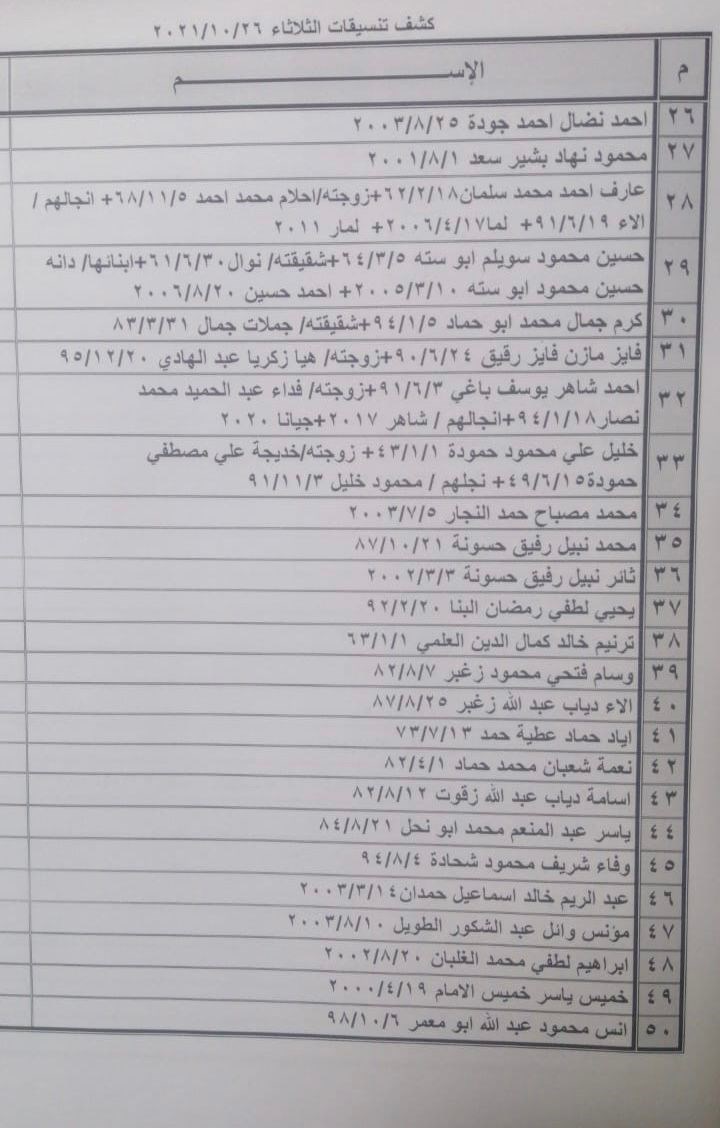 كشف تنسيقات الثلاثاء ٢٠٢١/١٠/٢٦
م الإســـــــــم
٢٦ احمد نضال احمد جودة ٢٠٠٣/٨/٢٥
٢٧ محمود نهاد بشير سعد ٢٠٠١/٨/١
٢٨ عارف احمد محمد سلمان٦٢/٢/١٨+زوجته/احلام محمد احمد ٦٨/١١/٥+ انجالهم /
الاء ٩١/٦/١٩+ لما٢٠٠٦/٤/١٧+ لمار ٢٠١١
٢٩ حسين محمود سويلم ابو سته ٦٤/٣/٥+شقيقته/ نوال٦١/٦/٣٠+ابنائها/ دانه
حسين محمود ابو سته ٢٠٠٥/٣/١٠+ احمد حسين ٢٠٠٦/٨/٢٠
٣٠ كرم جمال محمد ابو حماد ٩٤/١/٥+شقيقته/ جملات جمال ٨٣/٣/٣١
٣١ فايز مازن فايز رقيق ٩٠/٦/٢٤+زوجته/ هيا زكريا عبد الهادي ٩٥/١٢/٢٠
٣٢ احمد شاهر يوسف باغي ٩١/٦/٣+زوجته/ فداء عبد الحميد محمد
نصار٩٤/١/١٨+انجالهم / شاهر ٢٠١٧+جيانا ٢٠٢٠
٣٣ خليل علي محمود حمودة ٤٣/١/١+ زوجته/خديجة علي مصطفي
حمودة٤٩/٦/١٥+ نجلهم / محمود خليل ٩١/١١/٣
٣٤ محمد مصباح حمد النجار ٢٠٠٣/٧/٥
٣٥ محمد نبيل رفيق حسونة ٨٧/١٠/٢١
٣٦ ثائر نبيل رفيق حسونة ٢٠٠٢/٣/٣
٣٧ يحيي لطفي رمضان البنا ٩٢/٢/٢٠
٣٨ ترنيم خالد كمال الدين العلمي ٦٣/١/١
٣٩ وسام فتحي محمود زغبر ٨٢/٨/٧
٤٠ الاء دياب عبد الله زغبر ٨٧/٨/٢٥
٤١ اياد حماد عطية حمد ٧٣/٧/١٣
٤٢ نعمة شعبان محمد حماد ٨٢/٤/١
٤٣ اسامة دياب عبد الله زقوت ٨٢/٨/١٢
٤٤ ياسر عبد المنعم محمد ابو نحل ٨٤/٨/٢١
٤٥ وفاء شريف محمود شحادة ٩٤/٨/٤
٤٦ عبد الريم خالد اسماعيل حمدان٢٠٠٣/٣/١٤
٤٧ مؤنس وائل عبد الشكور الطويل ٢٠٠٣/٨/١٠
٤٨ ابراهيم لطفي محمد الغلبان ٢٠٠٢/٨/٢٠
٤٩ خميس ياسر خميس الامام ٢٠٠٠/٤/١٩
٥٠ انس محمود عبد الله ابو معمر ٩٨/١٠/٦